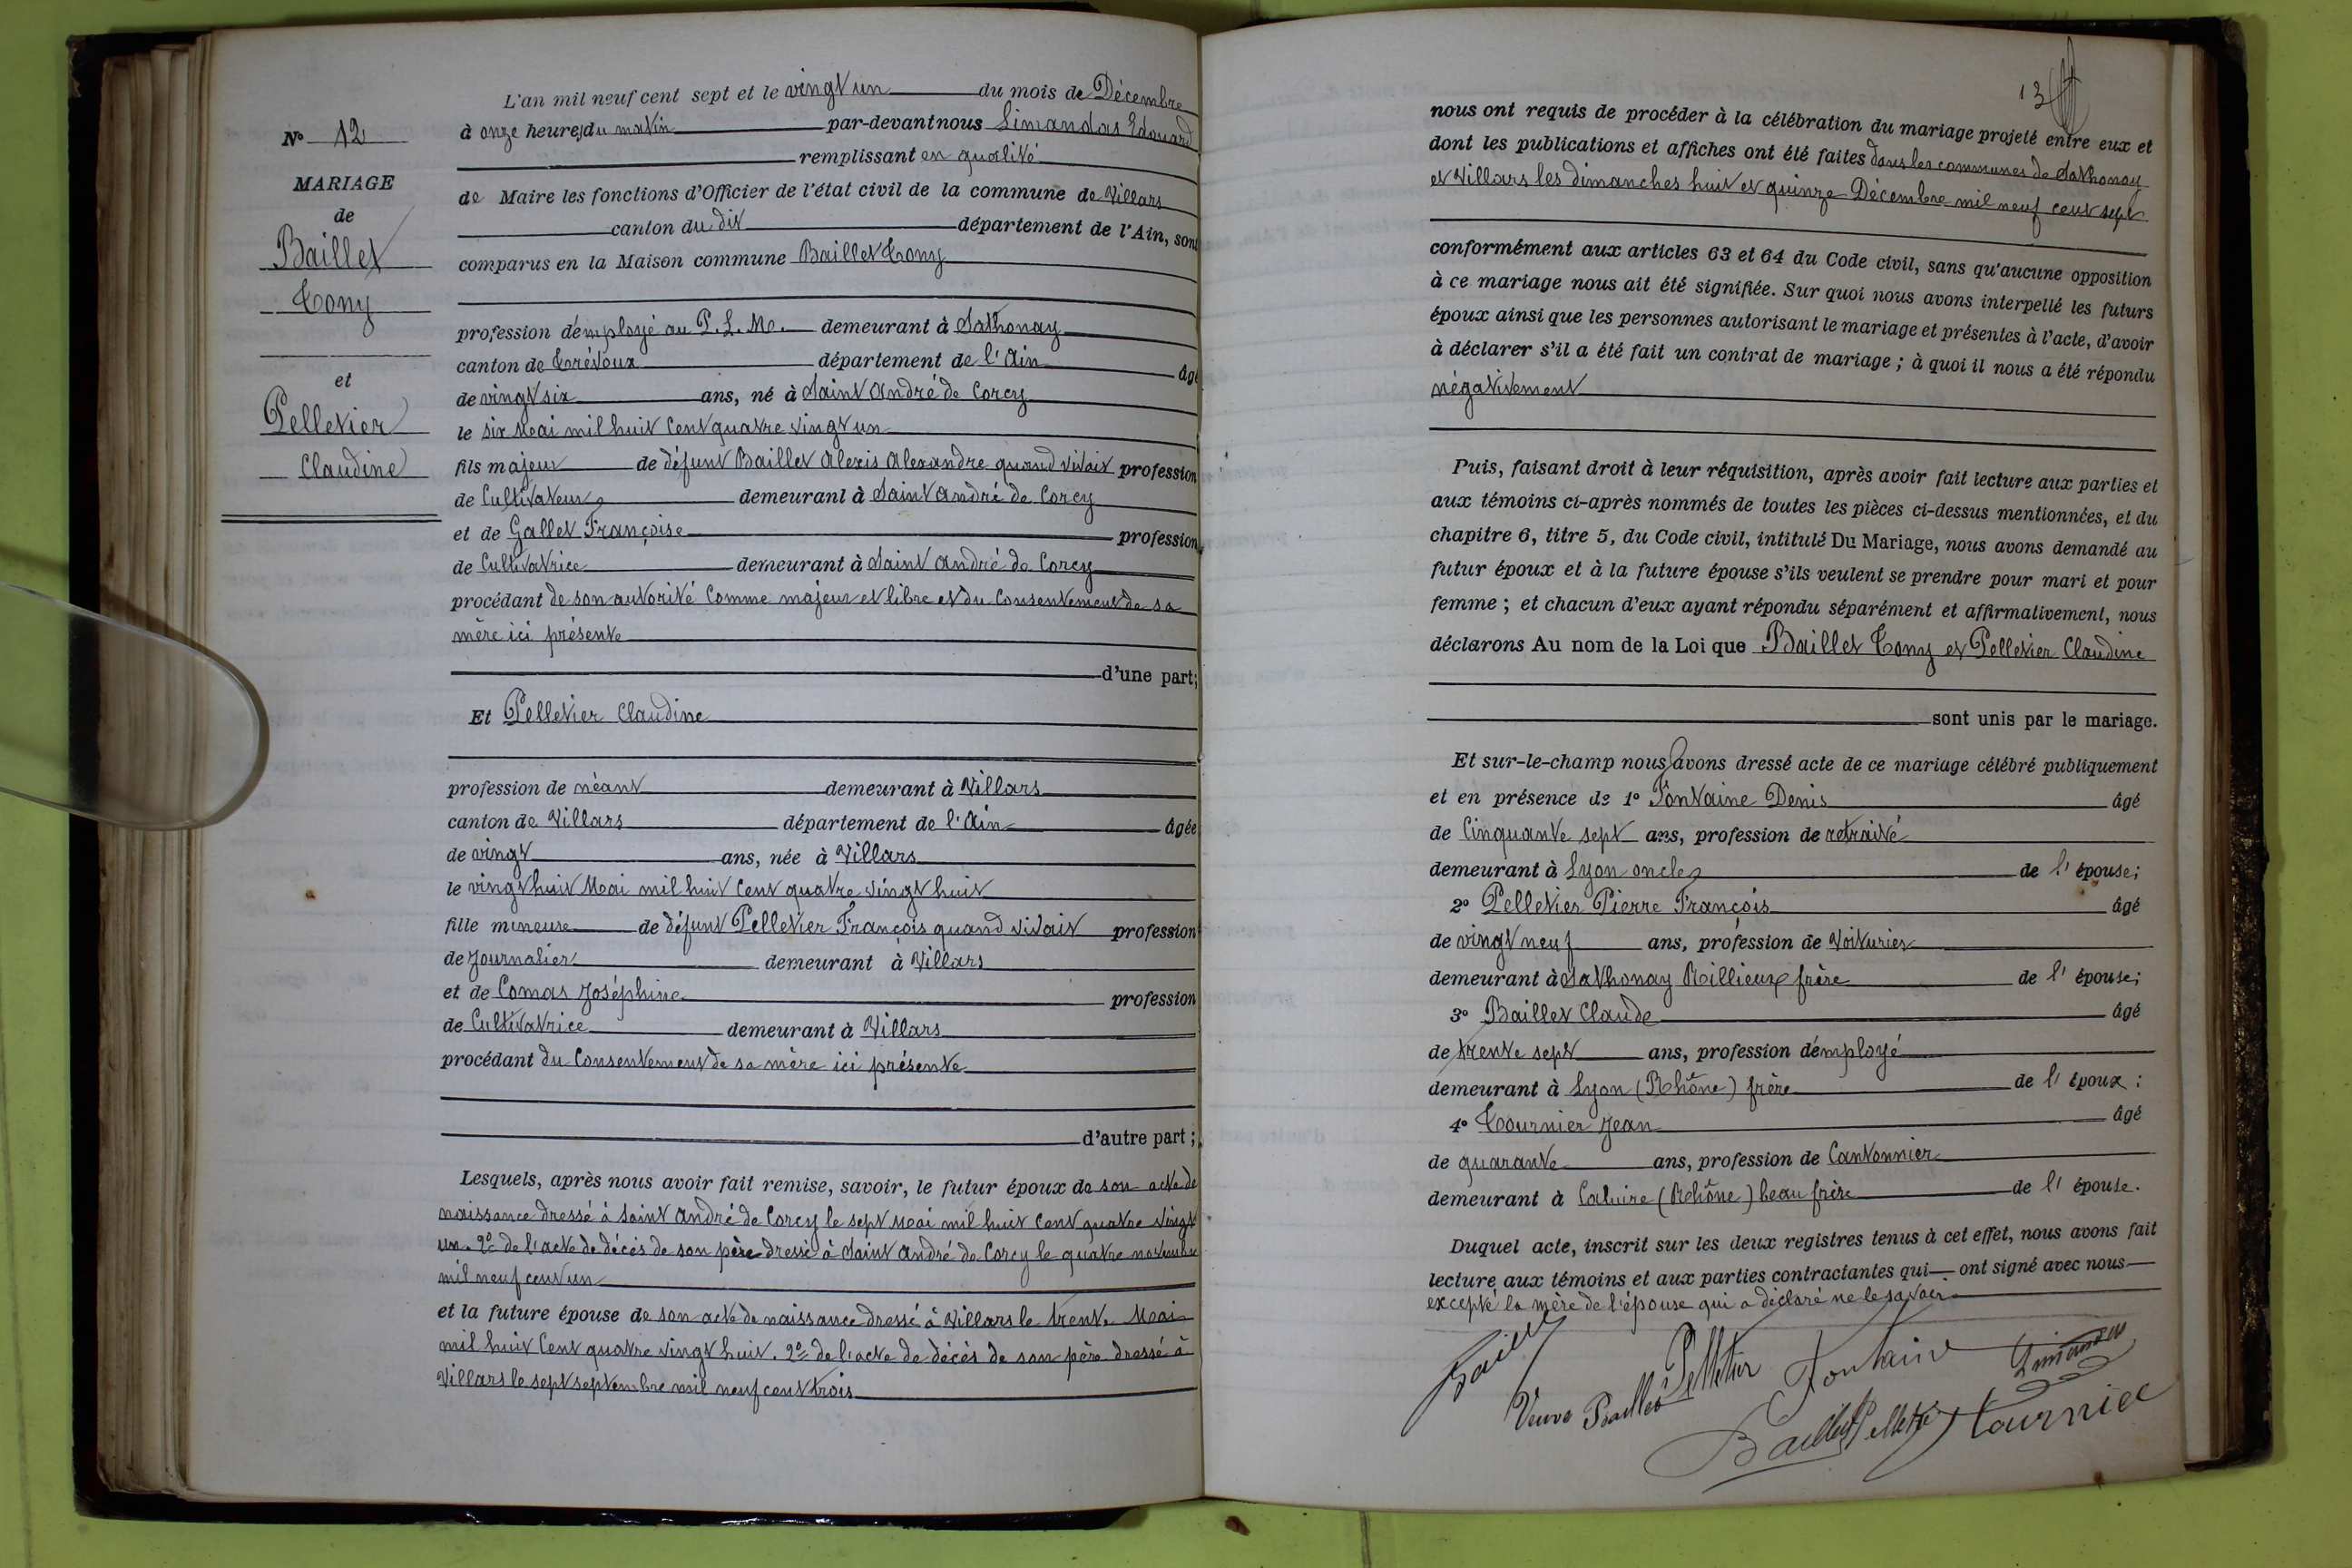 N° 12
MARIAGE
de
Baillet
Tony
et
Pelletier
Claudine
L'an mil neuf cent sept et le vingt un du mois de Décembre
à onze heures du matin par-devant nous Limandas Edouard
remplissant en qualité
de Maire les fonctions d'Officier de l'état civil de la commune de Villars
canton du dit département de l'Ain, sont
comparus en la Maison commune Baillet Tony
profession d'employé au P. L. M. demeurant à Sathonay
canton de Trévoux département de l'Ain âgé
de vingt six ans, né à Saint André de Corcy
le six Mai mil huit cent quatre vingt un
fils majeur de défunt Baillet Alexis Alexandre quand vivait profession
de Cultivateur demeurant à Saint André de Corcy
et de Gallet Françoise profession
de Cultivatrice demeurant à Saint André de Corcy
procédant de son autorité comme majeur et libre et du consentement de sa
mère ici présente
d'une part;
Et Pelletier Claudine
profession de néant demeurant à Villars
canton de Villars département de l'Ain âgée
de vingt ans, née à Villars
le vingt huit Mai mil huit cent quatre vingt huit
fille mineure de défunt Pelletier François quand vivait profession
de Journalier demeurant à Villars
et de Comas Joséphine profession
de Cultivatrice demeurant à Villars
procédant du consentement de sa mère ici présente
d'autre part;
Lesquels, après nous avoir fait remise, savoir, le futur époux de son acte de
naissance dressé à Saint André de Corcy le sept Mai mil huit cent quatre vingt
un. 2° de l'acte de décès de son père dressé à Saint André de Corcy le quatre novembre
mil neuf cent un
et la future épouse de son acte de naissance dressé à Villars le trente Mai
mil huit cent quatre vingt huit. 2° de l'acte de décès de son père dressé à
Villars le sept septembre mil neuf cent trois
13
nous ont requis de procéder à la célébration du mariage projeté entre eux et
dont les publications et affiches ont été faites dans les communes de Sathonay
et Villars les dimanches huit et quinze Décembre mil neuf cent sept
conformément aux articles 63 et 64 du Code civil, sans qu'aucune opposition
à ce mariage nous ait été signifiée. Sur quoi nous avons interpellé les futurs
époux ainsi que les personnes autorisant le mariage et présentes à l'acte, d'avoir
à déclarer s'il a été fait un contrat de mariage; à quoi il nous a été répondu
négativement
Puis, faisant droit à leur réquisition, après avoir fait lecture aux parties et
aux témoins ci-après nommés de toutes les pièces ci-dessus mentionnées, et du
chapitre 6, titre 5, du Code civil, intitulé Du Mariage, nous avons demandé au
futur époux et à la future épouse s'ils veulent se prendre pour mari et pour
femme; et chacun d'eux ayant répondu séparément et affirmativement, nous
déclarons Au nom de la Loi que Baillet Tony et Pelletier Claudine
sont unis par le mariage.
Et sur-le-champ nous avons dressé acte de ce mariage célébré publiquement
et en présence de 1° Fontaine Denis âgé
de Cinquante sept ans, profession de retraité
demeurant à Lyon oncle de l'épouse;
2° Pelletier Pierre François âgé
de vingt neuf ans, profession de Voiturier
demeurant à Sathonay Rillieux frère de l'épouse;
3° Baillet Claude âgé
de trente sept ans, profession d'employé
demeurant à Lyon (Rhône) frère de l'époux;
4° Tournier Jean âgé
de quarante ans, profession de Cantonnier
demeurant à Caluire (Rhône) beau frère de l'épouse.
Duquel acte, inscrit sur les deux registres tenus à cet effet, nous avons fait
lecture aux témoins et aux parties contractantes qui ont signé avec nous
excepté la mère de l'épouse qui a déclaré ne le savoir.
Baillet
Veuve Baillet Pelletier Fontaine Limandas
Baillet Pelletier Tournier